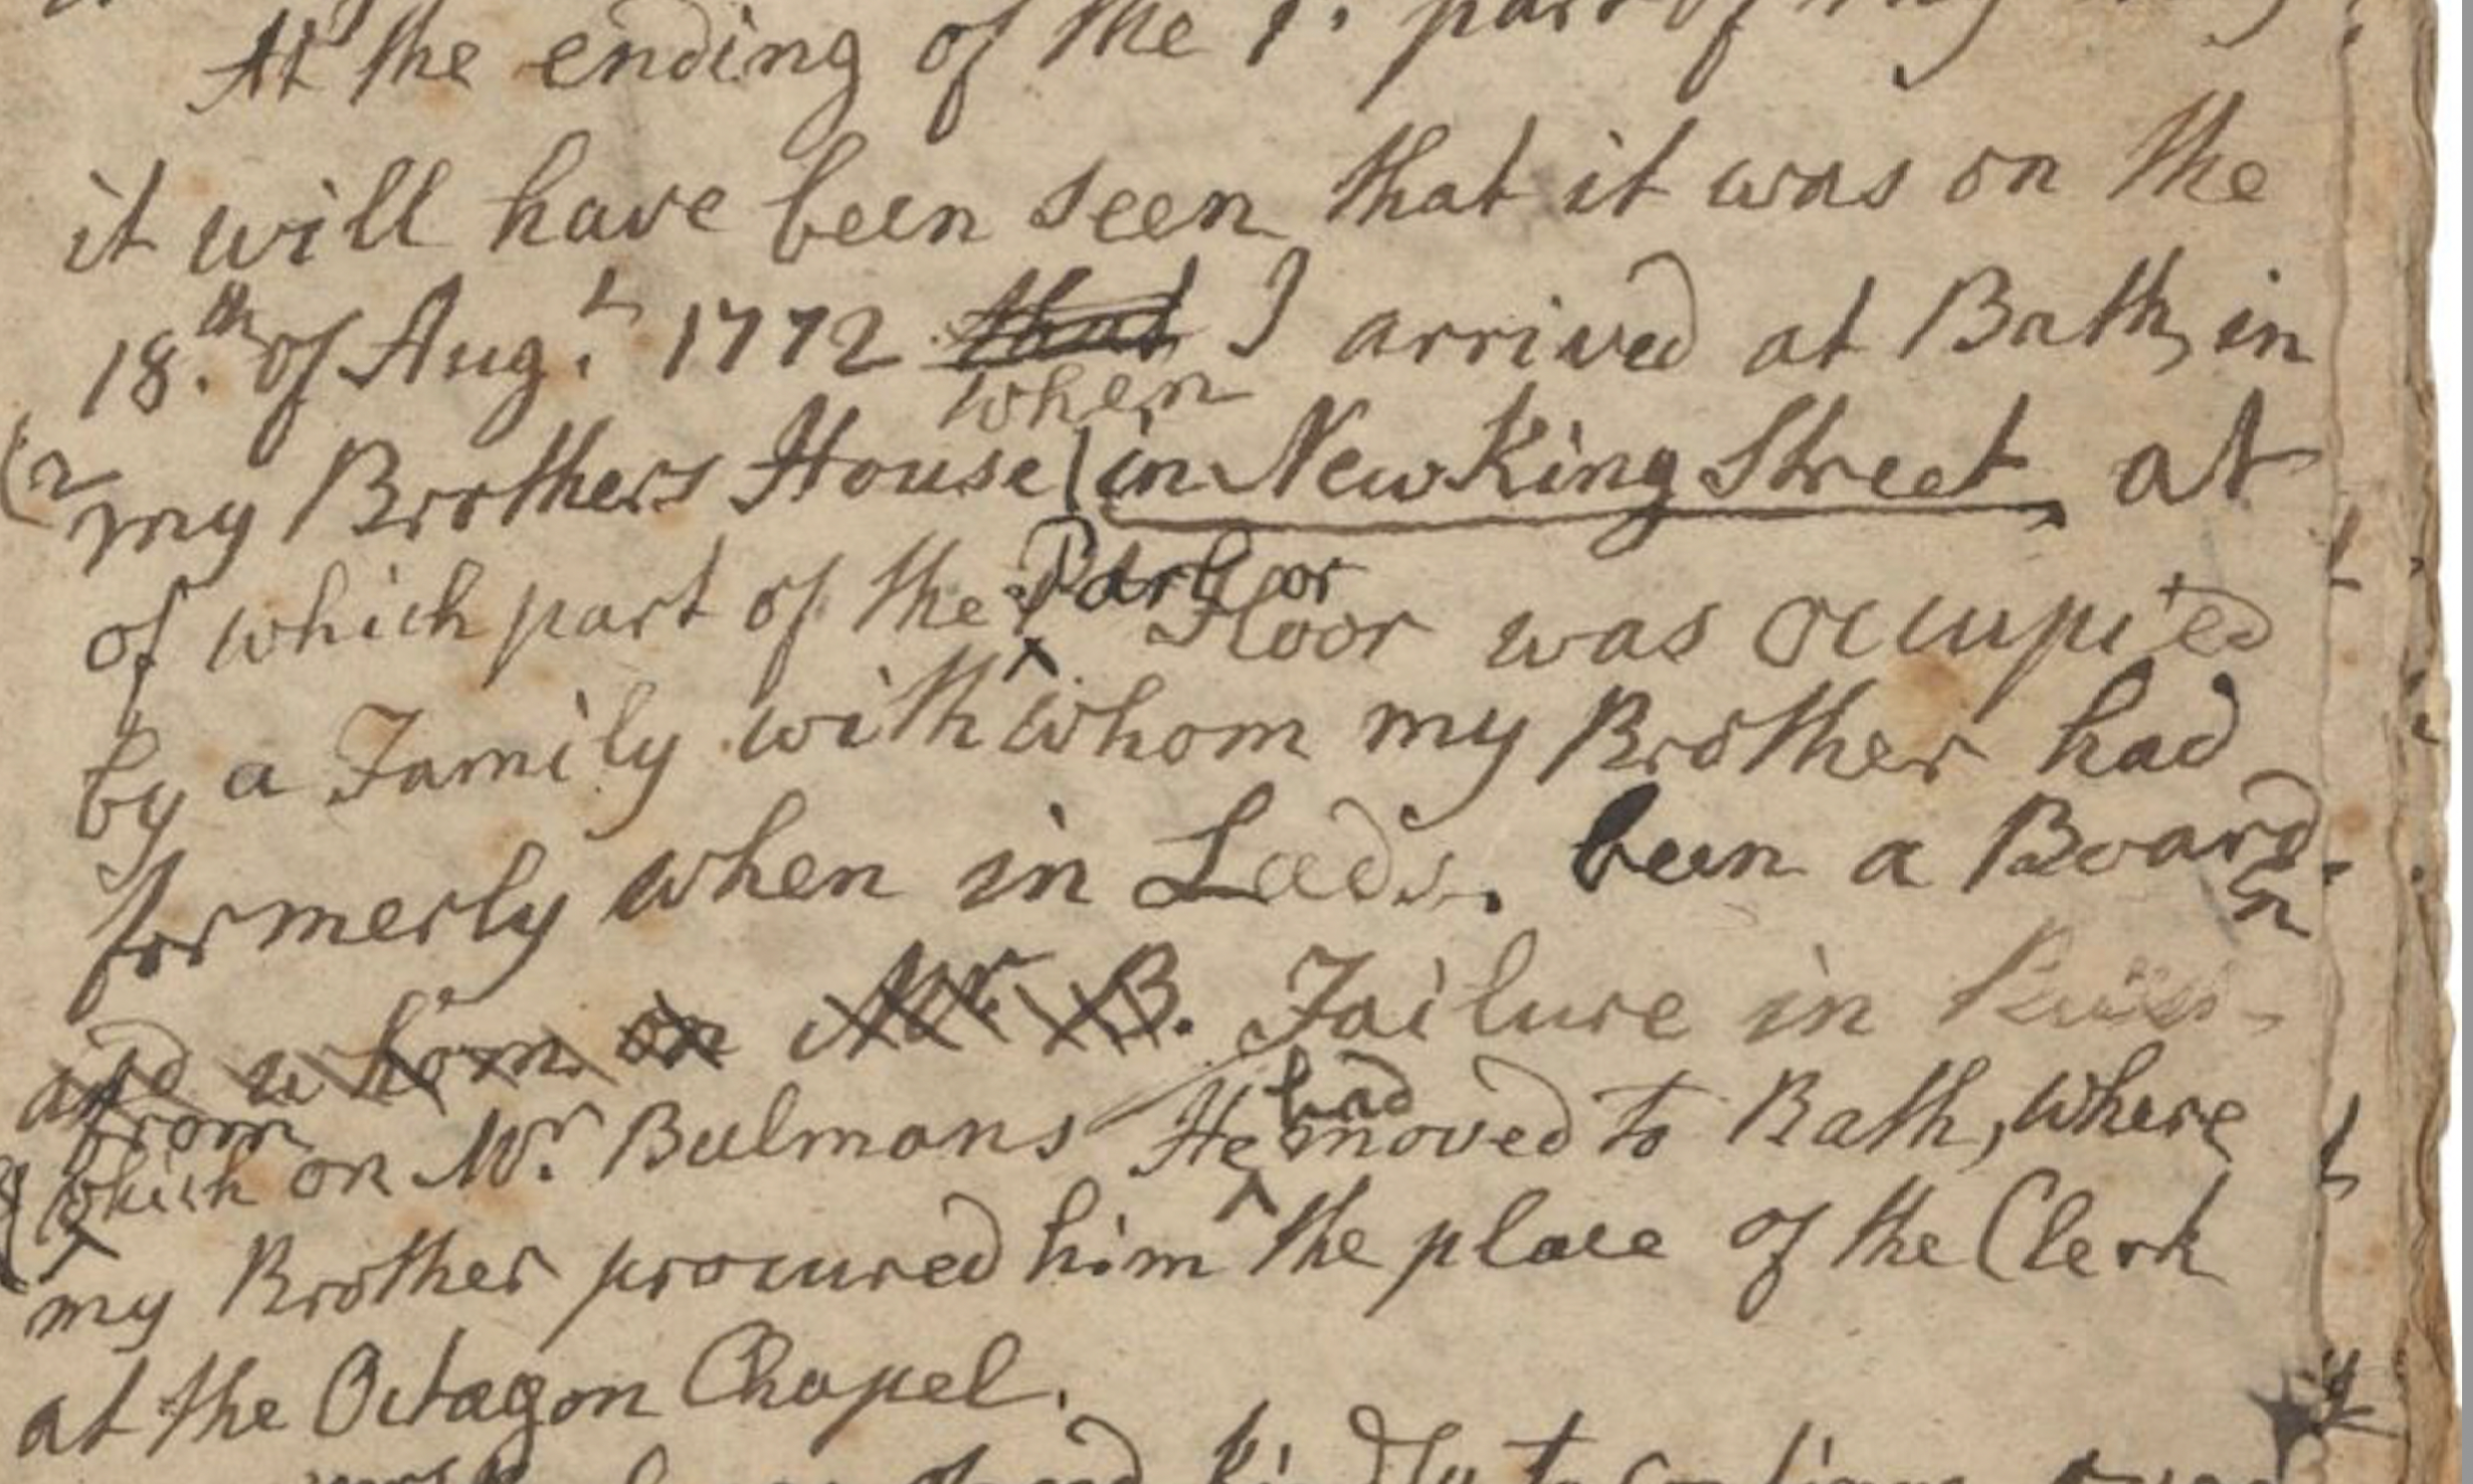 At the ending of the 1. part of my
it will have been seen that it was on the
18.th of Aug.t 1772 that I arrived at Bath, in
when
(2 my Brothers House (in New King Street at
Parlor
of which part of the Floor was occupied
by a Family with whom my Brother had
formerly when in Leeds. been a Board.
and whom on Mr. B. Failure in
from had
which on Mr. Bulmans He moved to Bath, where
my Brother procured him the place of the Clerk
at the Octagon Chapel.
kindly to continue